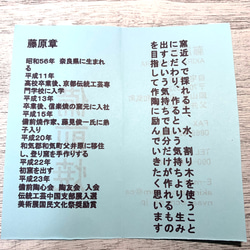 藤原章
昭和56年 奈良県に生まれる
平成11年
高校卒業後、京都伝統工芸専門学校に入学
平成13年
卒業後、信楽焼の窯元に入社
平成15年
備前焼作家、藤見俊一氏に弟子入り
平成20年
和気郡和気町父井原に移住し、登り窯を手作りする
平成22年
初窯を出す
平成23年
備前陶心会 陶友会 入会
伝統工芸中国支部展入選
美術展国民文化祭奨励賞
窯近くで採れる土、水、割り木を使うこと
にこだわり、作るという気持ちより、生み
出すという気持ちで自然にできた形のもの
を目指して作陶に励んでいきたいと思います